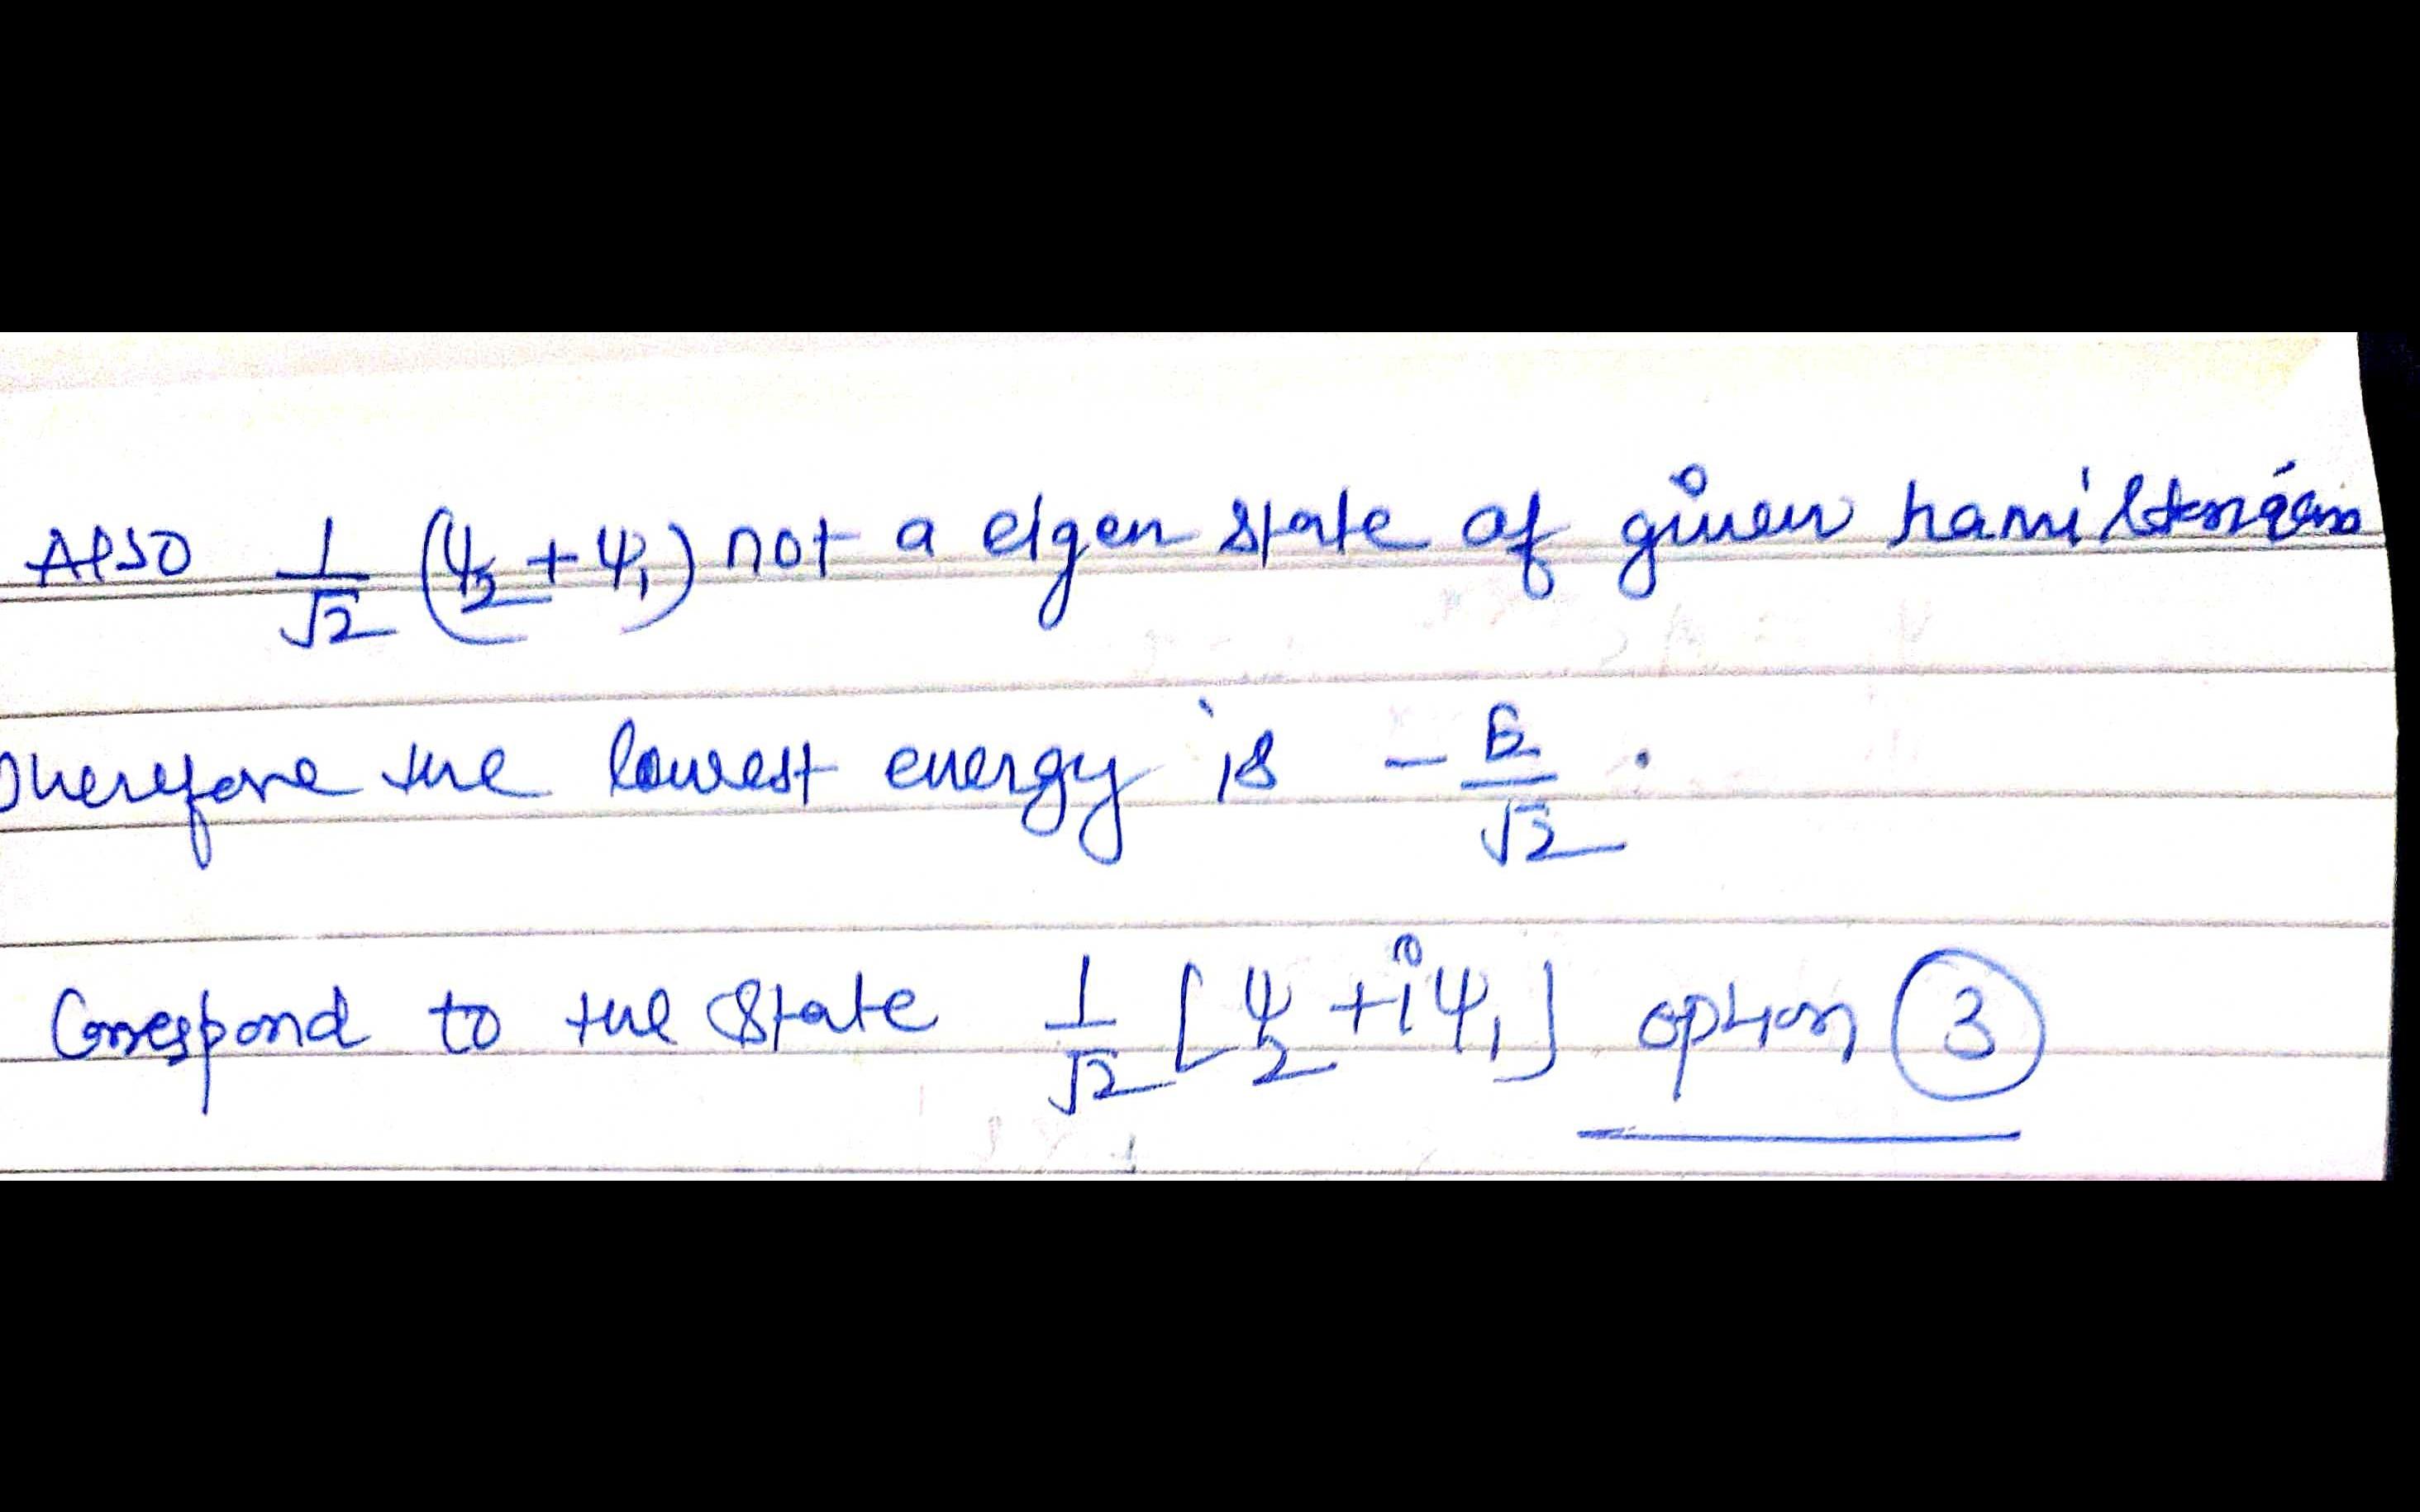 Also 1/√2 (ψ2 + ψ1) not a eigen state of given hamiltonian
Therefore the lowest energy is - E/√2 .
Correspond to the State 1/√2 [ψ2 + iψ1] option 3